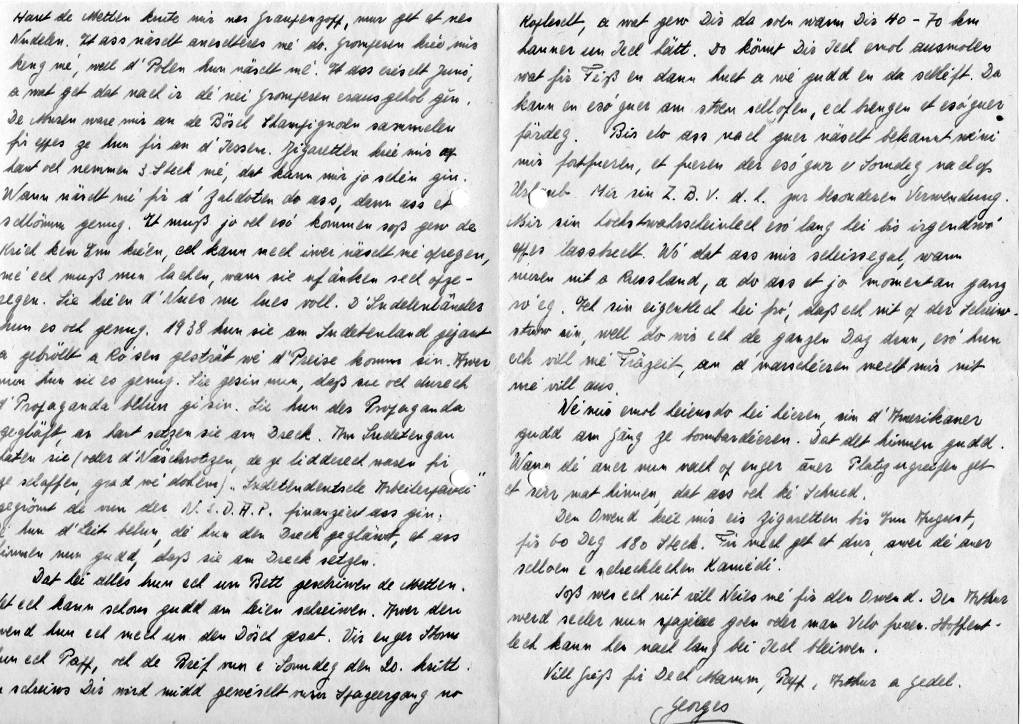 Haut de Metten krute mir nes Graupenzopp, mur get et nes
Nudelen. Et ass näischt aneschteres mé do. Gromperen kréie mir
keng mé, well d'Polen hun näischt mé. Et ass eréischt Juni,
a wat get dat nach ir dé nei Gromperen erausgeholl gin.
De Muren ware mir an de Bösch Champignon sammelen
fir eppes ze hun fir an d'Iessen. Zigaretten krié mir of
haut och nemmen 3 Steck mé, dat kann mir jo schéin gin.
Wann näischt mé fir d'Zaldoten do ass, dann ass et
schlömm genug. Et muß jo och esó kommen soß gew de
Krich ken Enn kréien, ech kann mech iwer näischt mé opregen,
mé ech muß nun lachen, wann sie ufänken sech opze-
regen. Sie krien d'Nues nu lues voll. D'Sudetenländer
hun es och genug. 1938 hun sie am Sudetenland gejaut
a gebröllt a Rosen gesträt wé d'Preise komm sin. Awer
nun hun sie es genug. Sie gesin nun, daß sie och duerch
d'Propaganda belun gi sin. Sie hun der Propaganda
gegläft, an haut setzen sie am Dreck. Am Sudetengau
haten sie (oder d'                 , de ze lidderech waren fir
ze schaffen, grad wé doheem) "Sudetendeutsche Arbeiterpartei"
gegrönt dé vun der N.S.D.A.P. finanzéiert ass gin.
hun d'Leit belun, dé hun den Dreck gegläwt, et ass
hinnen nun gudd, daß sie am Dreck setzen.
Dat hei alles hun ech um Bett geschriwen de Metten.
ech kann schons gudd am leien schreiwen. Awer den
Owend hun ech mech un den Dösch gesat. Vir enger Stonn
hun ech Paff, och de Bréf vun e Sonndeg den 20. kritt.
schreiws Dir wird midd gewiescht vum Spazéiergang no
Kopleselt, a wat gew Dir da soen wann Dir 40 - 70 km
hanner un Iech hätt. Do könnt Dir Iech emol ausmolen
wat fir Féiß en dann huet a wé gudd en da schléft. Da
kann en esóguer am stoen schlofen, ech brengen et esóguer
färdeg. Bis elo ass nach guer näischt bekannt wéini
mir fortfueren, et fueren der esóguer e Sonndeg nach op
Urlaub. Mir sin Z.B.V. d.h. zur besonderen Verwendung.
Mir sin hochstwahrscheinlech esó lang hei bis irgendwó
eppes lassbrecht. Wó dat ass mir scheissegal, wann
nieren nit a Russland, a do ass et jo momentan ganz
ro'eg. Ech sin eigentlech hei fró, daß ech nit op der Schreiw-
stuw sin, well do mir ech de ganzen Dag dran, esó hun
ech vill mé Fräizeit, an d'marschéieren mecht mir nit
mé vill aus.
Wé mir emol heiansdo hei héieren, sin d'Amerikaner
gudd am Gäng ze bombardéieren. Dat det hinnen gudd.
Wann dé aner nun nach op enger äner Platz ugräifen get
et seier mat hinnen, dat ass och ké Schued.
Den Owend krié mir eis Zigaretten bis Enn August,
fir 60 Deg 180 Steck. Fir mech get et dur, awer dé aner
schloen e schrecklechen Kaméidi.
Soß wes ech nit vill Neies mé fir den Owend. Den Arthur
werd secher nun spazéiere goen oder man Velo fueren. Hoffent-
lech kann hen nach lang bei Iech bleiwen.
Vill Gréiß fir Dech Mamm, Paff, Arthur a Gedel.
Georges